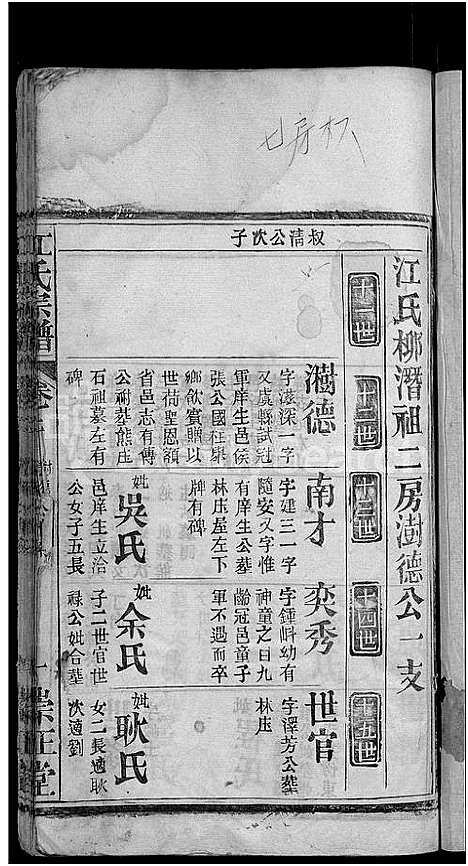 七房权
江氏柳潛祖二房澍德公一支
十一世
十二世
十三世
十四世
十五世
叔清公次子
澍德
字滋深一字
又虞縣試冠
軍庠生邑侯
張公國柱舉
鄉飲賓贈以
世荷聖恩額
省邑志有傳
公祔墓熊庄
石祖墓左有
碑
南才
字建三一字
隨安又字惟
有庠生公墓
林庄屋左下
牌有碑
妣吳氏
邑庠生立洽
公女子五長
奕秀
字鍾
幼有
神童之目九
齡冠邑童子
軍不遇而卒
妣余氏
子二世官世
祿公妣合墓
世官
字澤芳公墓
林庄
妣耿氏
女二長適耿
次適劉
江氏宗譜
卷
一
崇正堂